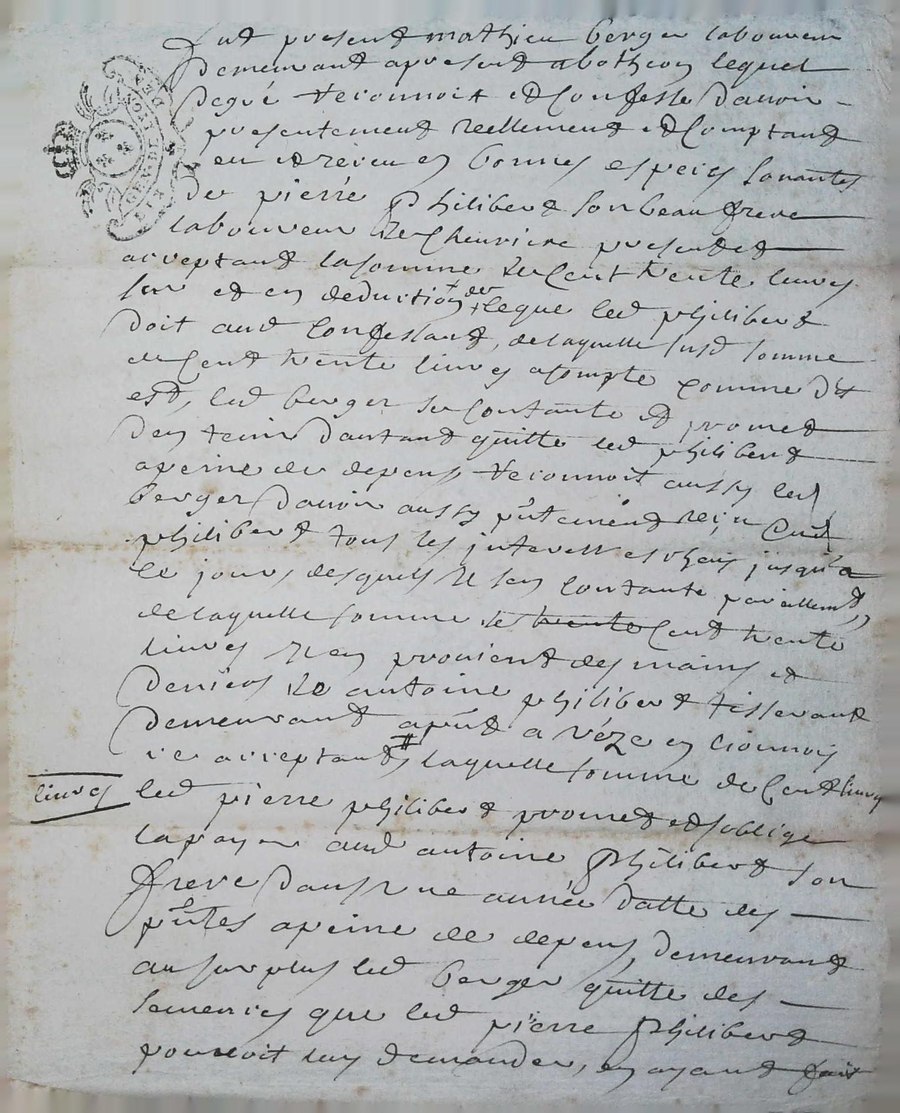 GNALITE DE LYON
SIX DEN
fut present mathieu berger laboureur
demeurant apresent a bothéon lequel
degré reconnoit et confesse davoir
presentement reellement et comptant
eu et reveu en bonnes especes sonantes
de pierre philibert son beau frere
laboureur de Cheuriere present et
acceptant la somme de Cent trente liures
sur et en deduition de leque led philibert
doit aud Confessant, de laquelle susd somme
de Cent trente liures acompte comme dit
est, led berger se contante et promet
den tenir dautant quitte led philibert
apeine de depens reconnoit aussy led
berger davoir aussy pntement reçu dud
philibert tous les interest escheus jusqua
ce jours desquels il sen contante pareillemt,
de laquelle somme de trente Cent trente
liures il en provient des mains et
deniers de antoine philibert tisserant
demeurant apnt a véze en lionnois
icy acceptant laquelle somme de Cent liures
liures
led pierre philibert promet et soblige
la payer aud antoine philibert son
frere dans une année datte des
pntes apeine de depens, demeurant
au surplus led berger quitte des
semences que led pierre philibert
pouvoit luy demander, en ayant fait